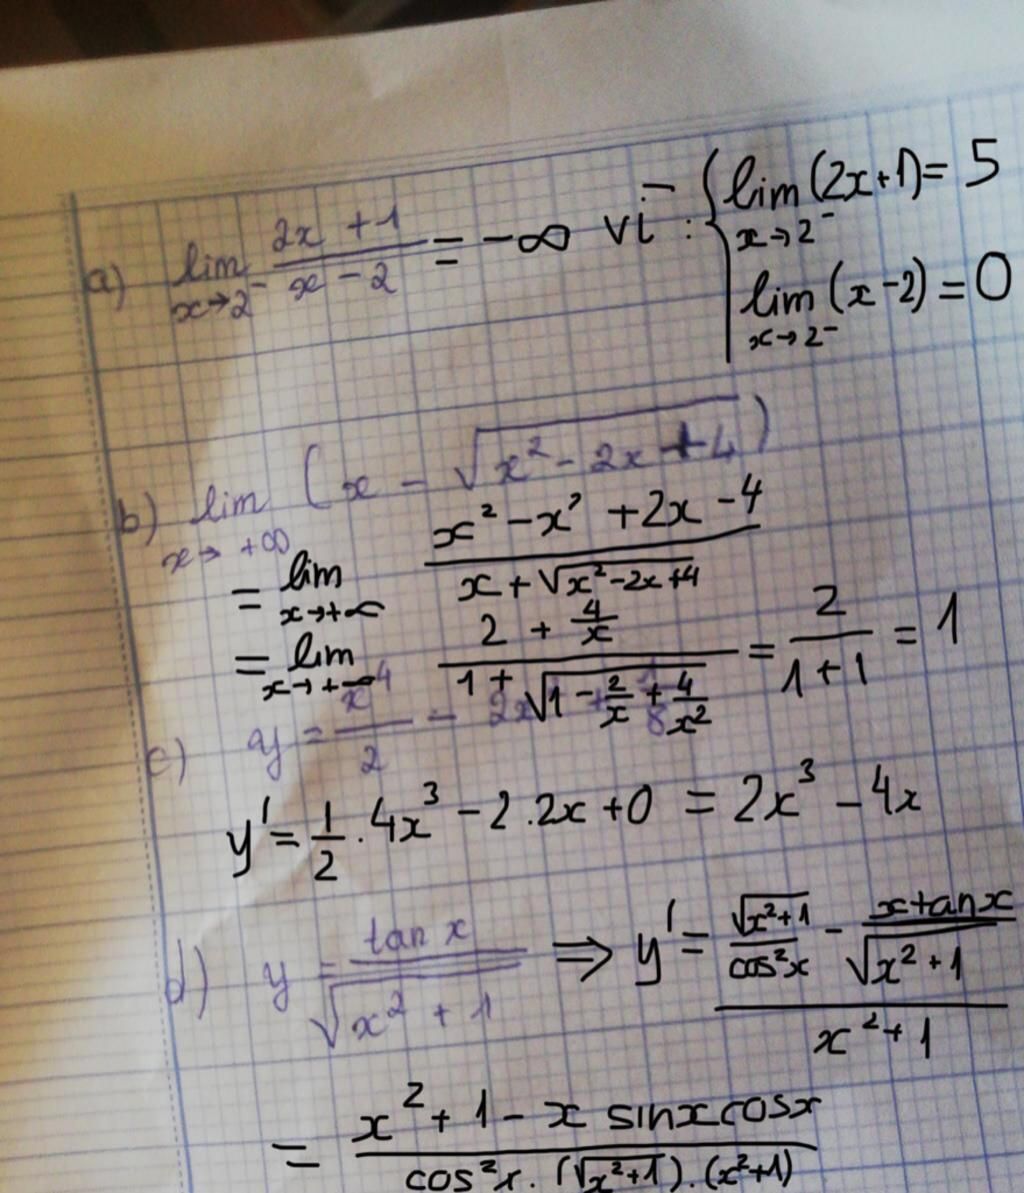 a) lim x→2⁻ (2x + 1)/(x − 2) = −∞ vì : { lim x→2⁻ (2x+1) = 5
lim x→2⁻ (x−2) = 0
b) lim x→ +∞ (x − √(x² − 2x + 4))
= lim x→+∞ (x² − x² + 2x − 4)/(x + √(x² − 2x + 4))
= lim x→+∞ (2 + 4/x)/(1 + √(1 − 2/x + 4/x²)) = 2/(1+1) = 1
c) y = x⁴/2 − 2x
y' = 1/2 . 4x³ − 2 . 2x + 0 = 2x³ − 4x
d) y = tan x/√(x² + 1) ⇒ y' = (√(x²+1)/cos²x − x tan x/√(x²+1))/(x² + 1)
= (x² + 1 − x sinx cosx)/(cos²x . (√(x²+1)) . (x²+1))